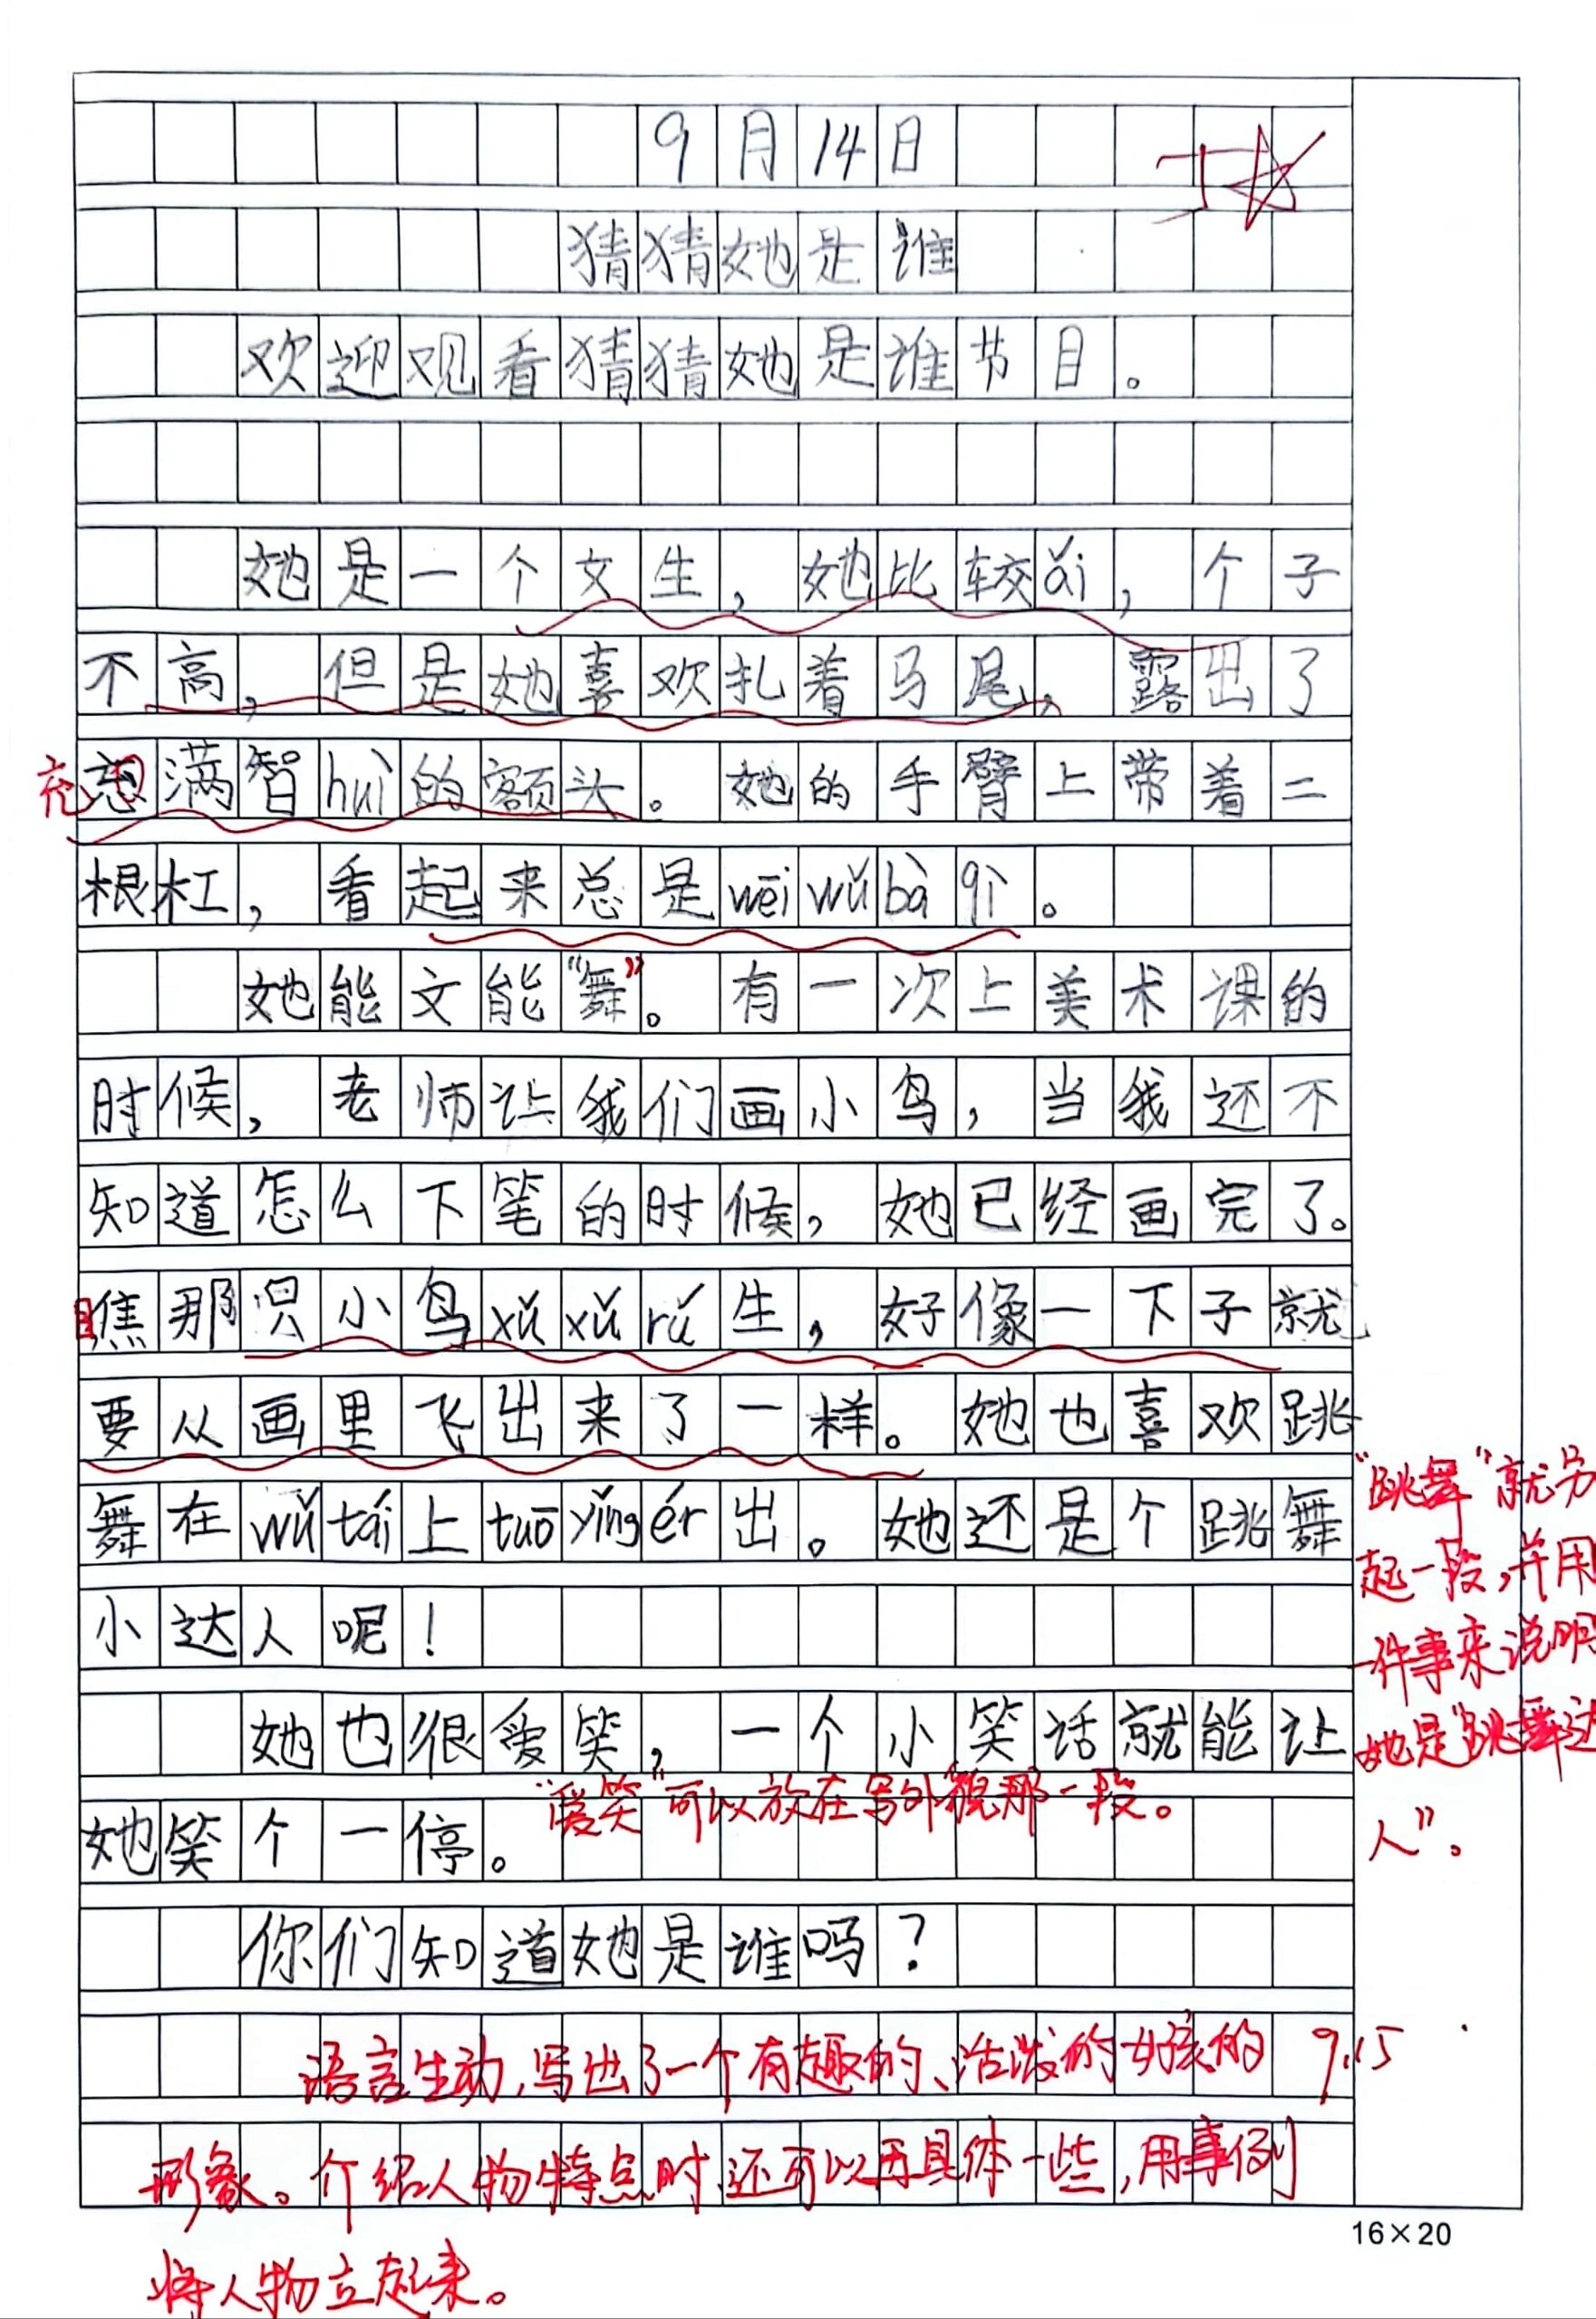 9月14日
猜猜她是谁
欢迎观看猜猜她是谁节目。
她是一个女生，她比较ǎi，个子
不高，但是她喜欢扎着马尾，露出了
充满智huì的额头。她的手臂上带着二
根杠，看起来总是wēiwǔbàqì。
她能文能“舞”。有一次上美术课的
时候，老师让我们画小鸟，当我还不
知道怎么下笔的时候，她已经画完了。
瞧那只小鸟xǔxǔrú生，好像一下子就
要从画里飞出来了一样。她也喜欢跳
舞在wǔtái上tuōyǐngér出。她还是个跳舞
小达人呢！
“跳舞”就另
起一段，并用
一件事来说明
她是“跳舞达
人”。
她也很爱笑，一个小笑话就能让
她笑个一停。
“爱笑”可以放在写外貌那一段。
你们知道她是谁吗？
语言生动，写出了一个有趣的、活泼的女孩的
形象。介绍人物特点时，还可以再具体一些，用事例
将人物立起来。
9.15
16×20